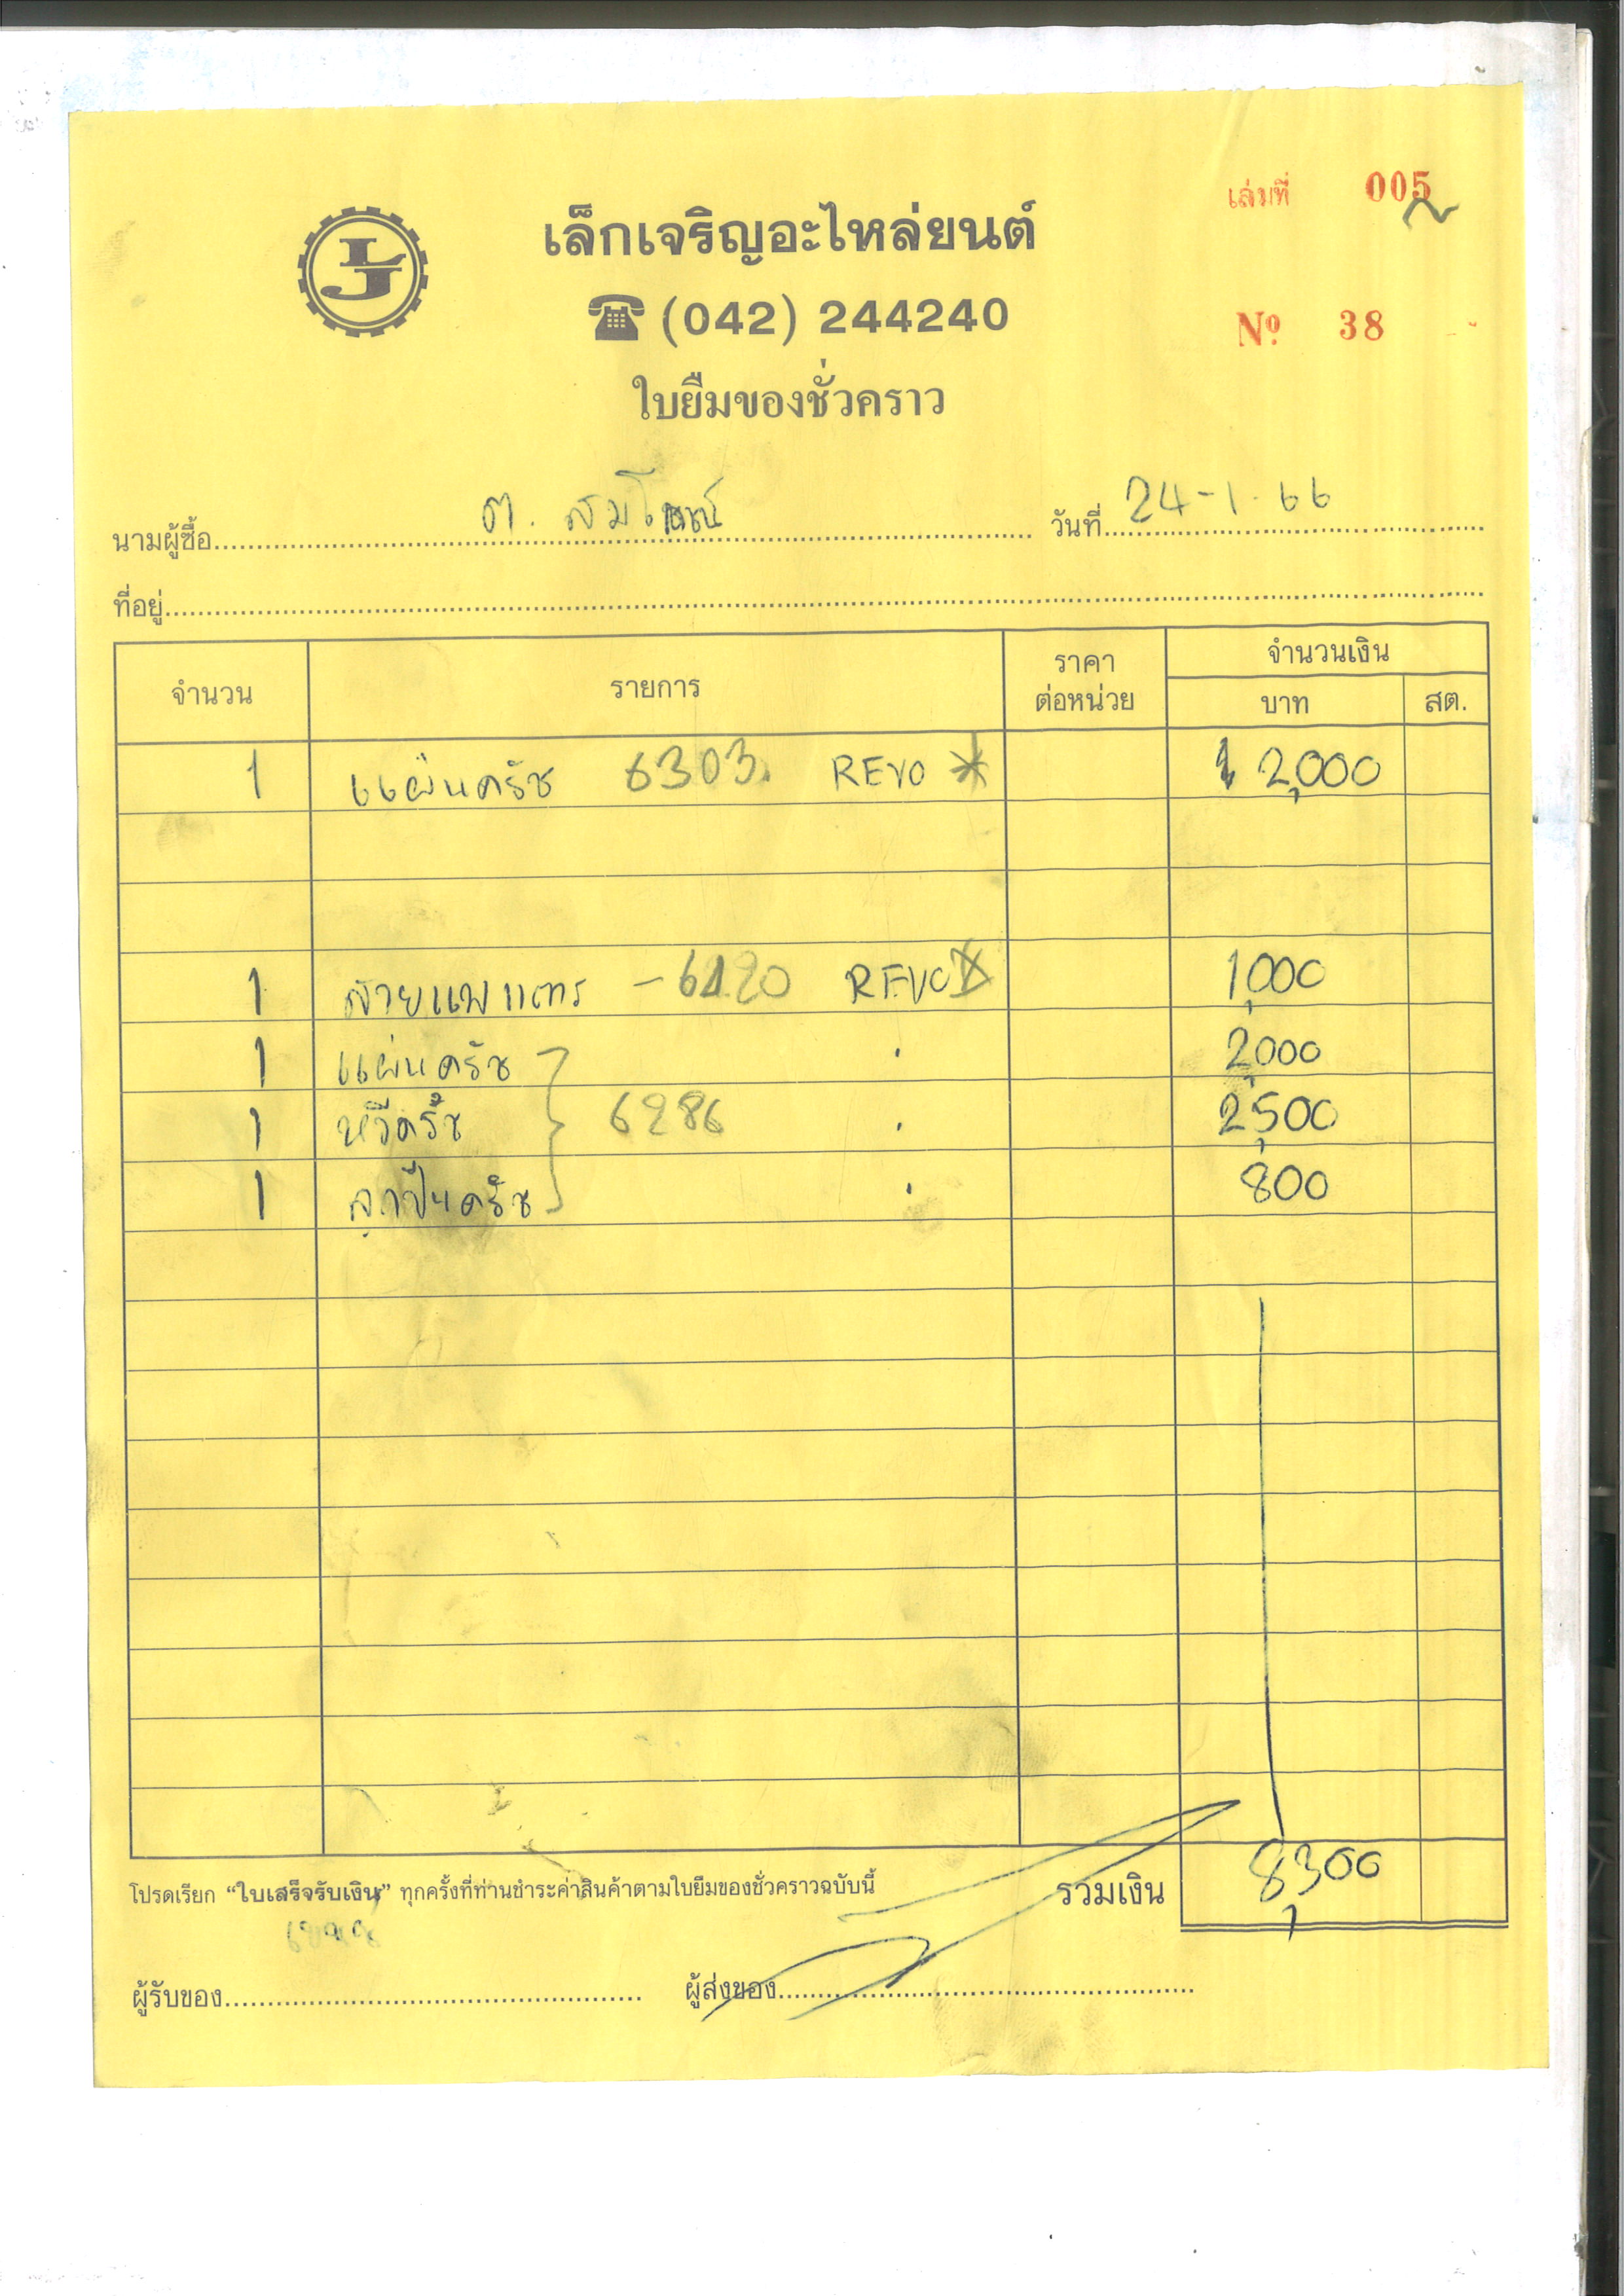 เล่มที่ 005
LJ
เล็กเจริญอะไหล่ยนต์
(042) 244240
Nº 38
ใบยืมของชั่วคราว
นามผู้ซื้อ ต. สมโภชน์ วันที่ 24-1-66
ที่อยู่
จำนวน รายการ ราคาต่อหน่วย จำนวนเงิน
บาท สต.
1 แผ่นครัช 6303 REVO 2,000
1 สายแพแตร - 6120 REVO 1,000
1 แผ่นครัช 2,000
1 หวีครัช 6286 2,500
1 ลูกปืนครัช 800
โปรดเรียก “ใบเสร็จรับเงิน” ทุกครั้งที่ท่านชำระค่าสินค้าตามใบยืมของชั่วคราวฉบับนี้ รวมเงิน 8,300
ผู้รับของ ผู้ส่งของ